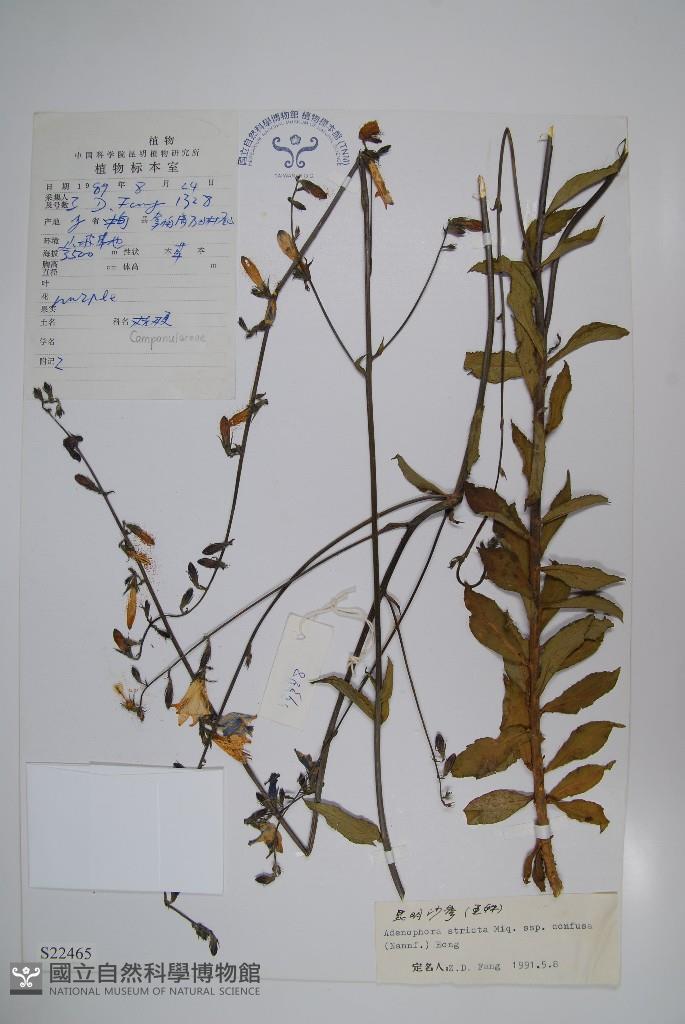 國立自然科學博物館 植物標本館 (TNM)
NATIONAL MUSEUM OF NATURAL SCIENCE
TAIWAN
植物
中国科学院昆明植物研究所
植物标本室
日期 1989 年 8 月 24 日
采集人及号数 Z. D. Fang 1328
产地 省 县
环境
海拔 3500 m 性状 木 草 本
胸高直径 cm 体高 m
叶
花 purple
果实
土名 科名
Campanulaceae
学名
附记 2
1328
昆明沙参
Adenophora stricta Miq. ssp. confusa
(Nannf.) Hong
定名人:Z.D. Fang 1991.5.8
S22465
國立自然科學博物館
NATIONAL MUSEUM OF NATURAL SCIENCE